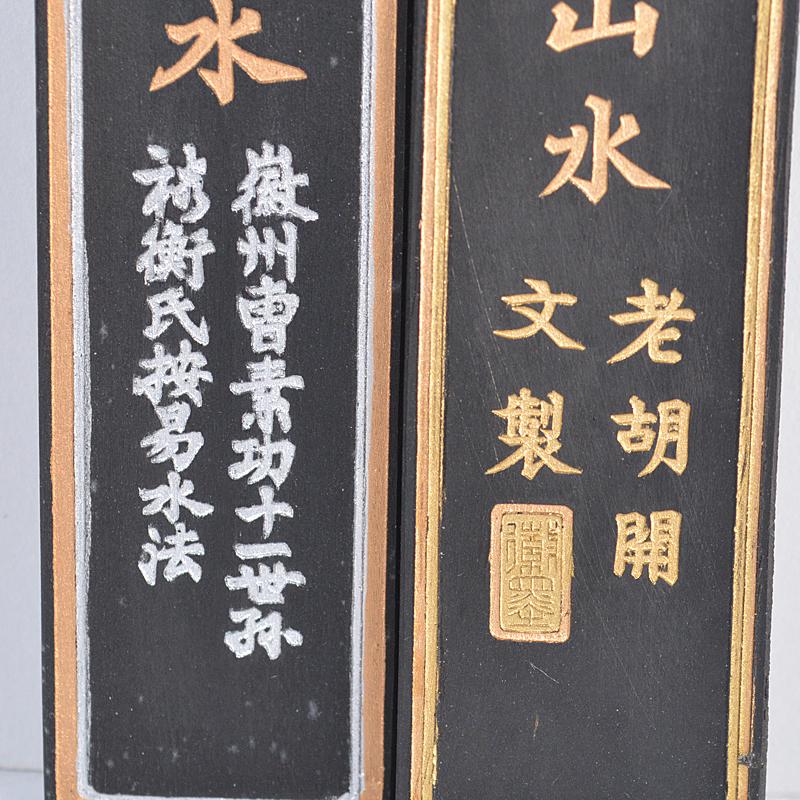 山水
老胡開
文製
水
徽州曹素功十一世孫
衡氏按易水法